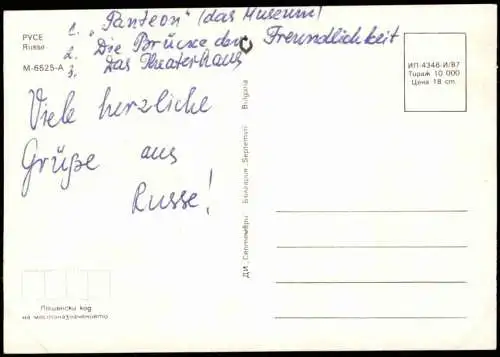 РУСЕ
Russe
M-6525-A
1. „Panteon" (das Museum)
2. Die Brücke der Freundlichkeit
3. Das Theaterhaus
Viele herzliche
Grüße aus
Russe!
ИП-4348-И/87
Тираж 10 000
Цена 18 ст.
ДИ „Септември" България Septemvri Bulgaria
Пощенски код
на местоназначението